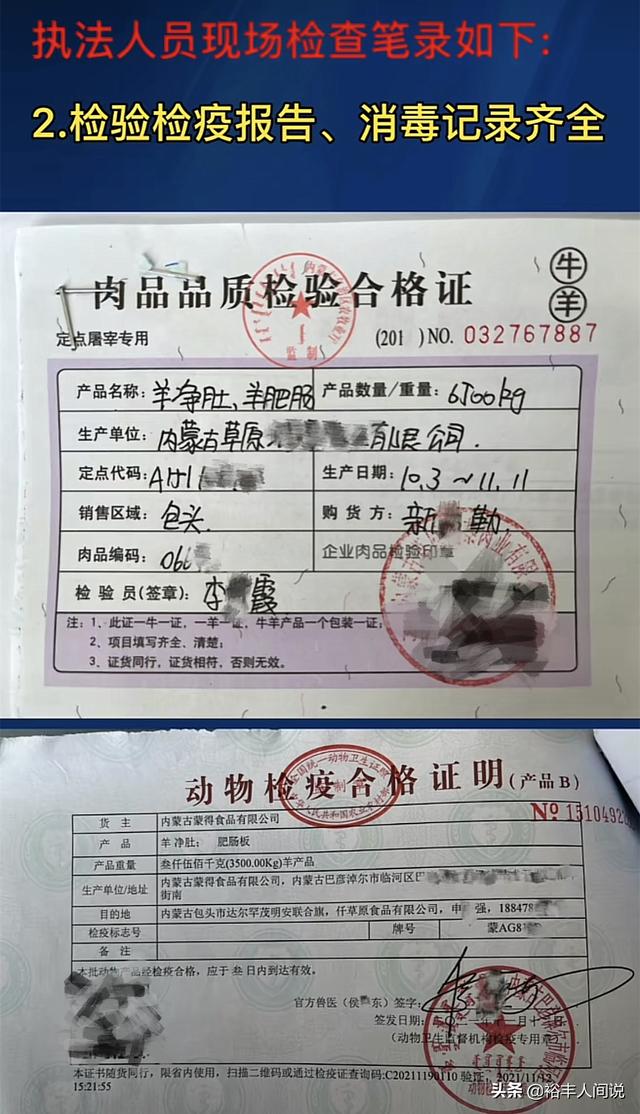 执法人员现场检查笔录如下:
2.检验检疫报告、消毒记录齐全
肉品品质检验合格证
牛
羊
定点屠宰专用
监制
(201 ) NO. 032767887
产品名称: 羊净肚、羊肥肠 产品数量/重量: 6500kg
生产单位: 内蒙古草原 有限公司.
定点代码: A151 生产日期: 10.3 ~ 11.11
销售区域: 包头. 购货方: 新 勤
肉品编码: 066 企业肉品检验印章
检验员(签章): 李 霞
注: 1、此证一牛一证,一羊一证,牛羊产品一个包装一证;
2、项目填写齐全、清楚;
3、证货同行,证货相符,否则无效。
动物检疫合格证明(产品B)
全国统一动物卫生证明
中华人民共和国农业农村部
No 1510492
货 主 内蒙古蒙得食品有限公司
产 品 羊 净肚; 肥肠板
产品重量 叁仟伍佰千克(3500.00Kg)羊产品
生产单位/地址 内蒙古蒙得食品有限公司,内蒙古巴彦淖尔市临河区
街南
目的地 内蒙古包头市达尔罕茂明安联合旗,仟草原食品有限公司,申 强,18847
检疫标志号 牌号 蒙AG8
备 注
本批动物产品经检疫合格,应于 叁 日内到达有效。
官方兽医(侯 东)签字:
签发日期:
(动物卫生监督机构检疫专用章)
本证书随货同行,限省内使用,扫描二维码或通过检疫证查询码:C20211190110 验证,2021/11/13
15:21:55
头条 @裕丰人间说